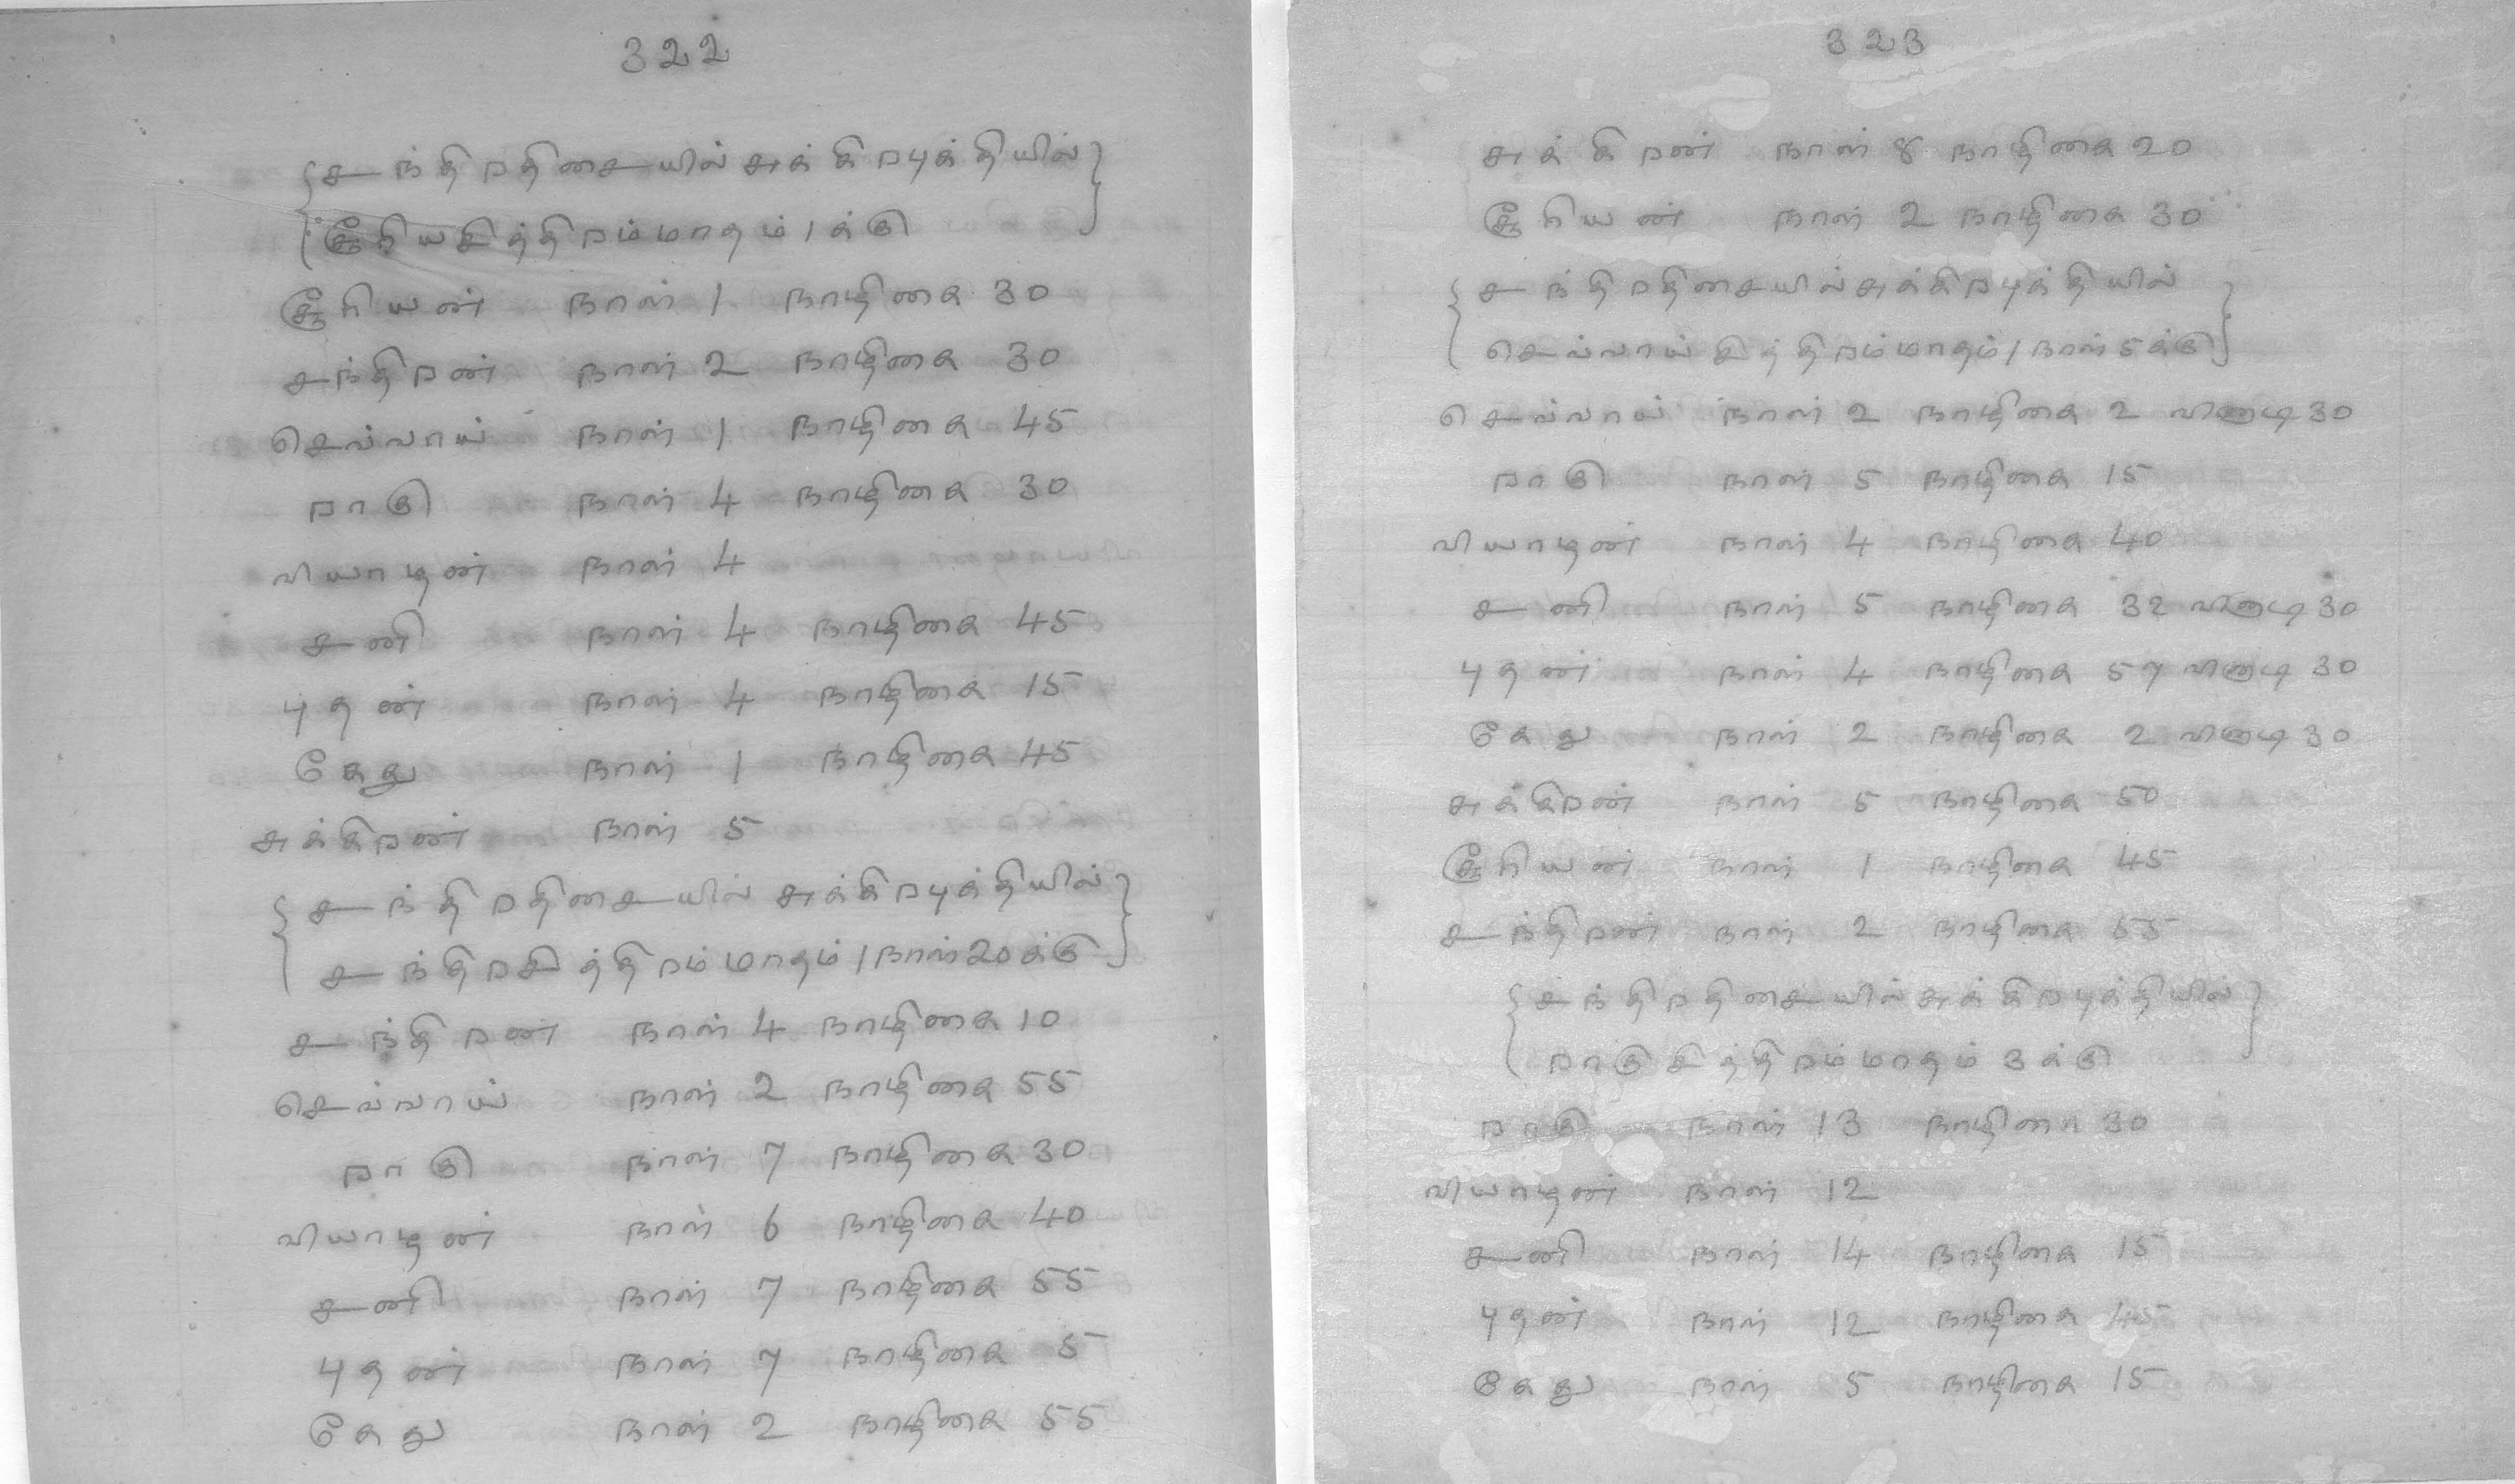 322
சந்திறதிசையில் சுக்கிறபுக்தியில்
சூரியசித்திறம் மாதம் 1க்கு
சூரியன் நாள் 1 நாழிகை 30
சந்திறன் நாள் 2 நாழிகை 30
செவ்வாய் நாள் 1 நாழிகை 45
றாகு நாள் 4 நாழிகை 30
வியாழன் நாள் 4
சனி நாள் 4 நாழிகை 45
புதன் நாள் 4 நாழிகை 15
கேது நாள் 1 நாழிகை 45
சுக்கிறன் நாள் 5
சந்திறதிசையில் சுக்கிறபுக்தியில்
சந்திறசித்திறம் மாதம் 1 நாள் 20க்கு
சந்திறன் நாள் 4 நாழிகை 10
செவ்வாய் நாள் 2 நாழிகை 55
றாகு நாள் 7 நாழிகை 30
வியாழன் நாள் 6 நாழிகை 40
சனி நாள் 7 நாழிகை 55
புதன் நாள் 7 நாழிகை 5
கேது நாள் 2 நாழிகை 55
323
சுக்கிறன் நாள் 8 நாழிகை 20
சூரியன் நாள் 2 நாழிகை 30
சந்திறதிசையில் சுக்கிறபுக்தியில்
செவ்வாய் சித்திறம் மாதம் 1 நாள் 5க்கு
செவ்வாய் நாள் 2 நாழிகை 2 வினாடி 30
றாகு நாள் 5 நாழிகை 15
வியாழன் நாள் 4 நாழிகை 40
சனி நாள் 5 நாழிகை 32 வினாடி 30
புதன் நாள் 4 நாழிகை 57 வினாடி 30
கேது நாள் 2 நாழிகை 2 வினாடி 30
சுக்கிறன் நாள் 5 நாழிகை 50
சூரியன் நாள் 1 நாழிகை 45
சந்திறன் நாள் 2 நாழிகை 55
சந்திறதிசையில் சுக்கிறபுக்தியில்
றாகுசித்திறம் மாதம் 3க்கு
றாகு நாள் 13 நாழிகை 30
வியாழன் நாள் 12
சனி நாள் 14 நாழிகை 15
புதன் நாள் 12 நாழிகை 45
கேது நாள் 5 நாழிகை 15